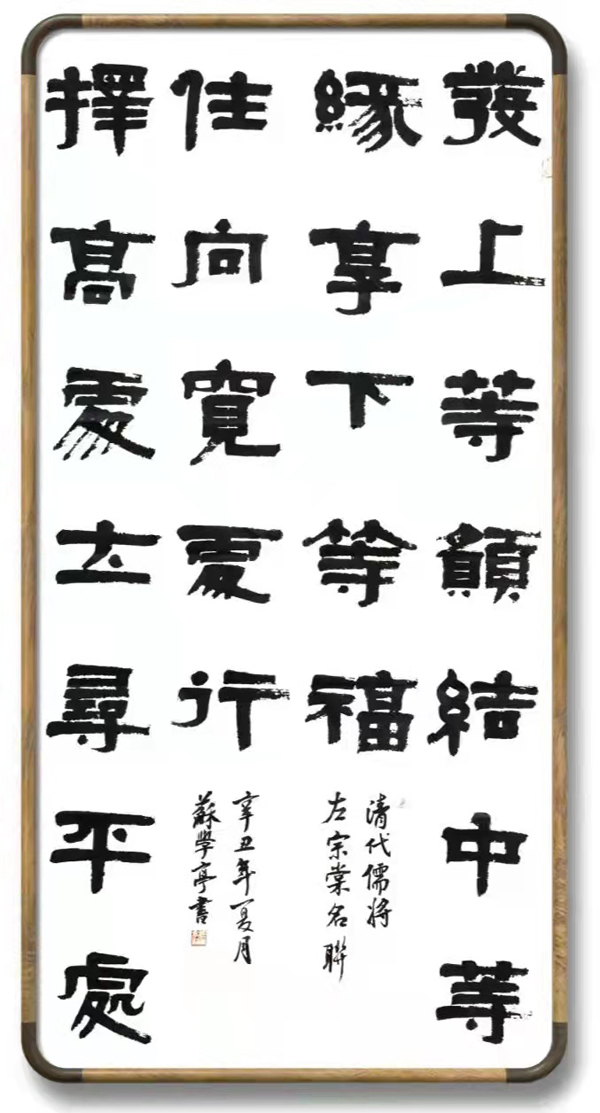 發上等願結中等
緣享下等福
清代儒將
左宗棠名聯
擇高處立尋平處
住向寬處行
辛丑年夏月
蘇學亭書